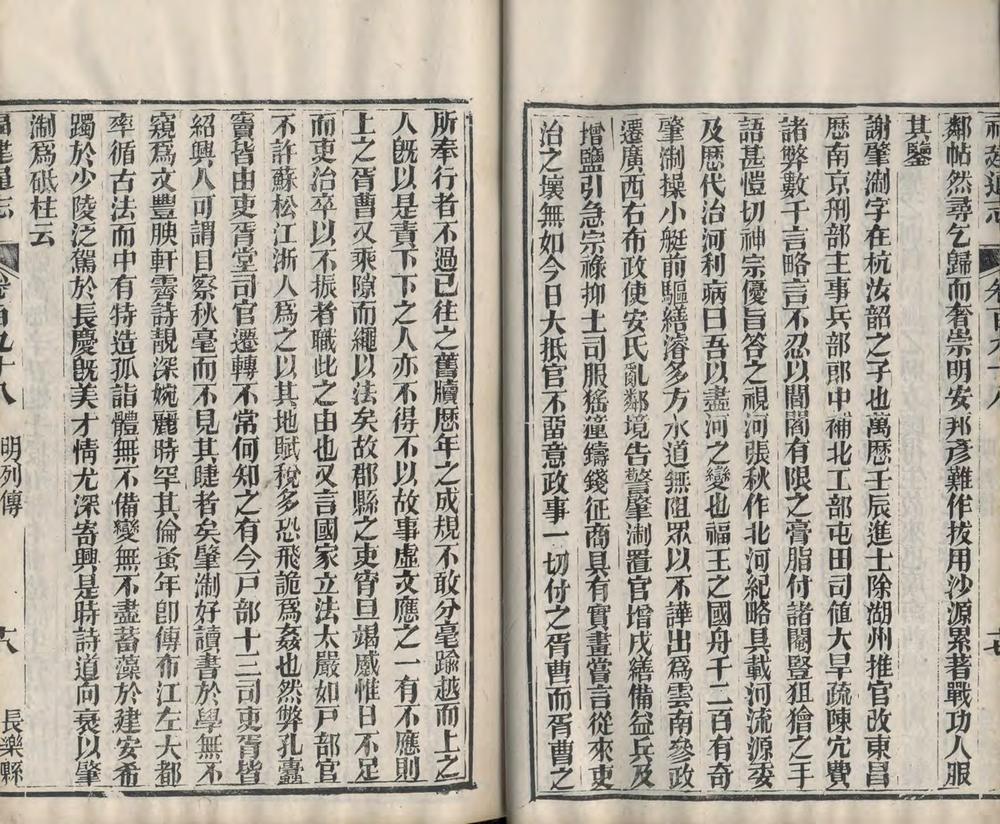 福建通志 卷百九十八
鄰帖然尋乞歸而奢崇明安邦彥難作拔用沙源累著戰功人服
其鑒
謝肇淛字在杭汝韶之子也萬歷壬辰進士除湖州推官改東昌
歷南京刑部主事兵部郎中補北工部屯田司值大旱疏陳宂費
諸弊數千言略言不忍以閭閻有限之膏脂付諸閹豎狙獪之手
語甚愷切神宗優旨答之視河張秋作北河紀略具載河流源委
及歷代治河利病曰吾以盡河之變也福王之國舟千二百有奇
肇淛操小艇前驅繕濬多方水道無阻眾以不譁出為雲南參政
遷廣西右布政使安氏亂鄰境告警肇淛置官增戍繕備益兵及
增鹽引急宗祿抑土司服猺獞鑄錢征商具有實畫嘗言從來吏
治之壞無如今日大抵官不畱意政事一切付之胥曹而胥曹之
所奉行者不過已往之舊牘歷年之成規不敢分毫踰越而上之
人既以是責下下之人亦不得不以故事虛文應之一有不應則
上之胥曹又乘隙而繩以法矣故郡縣之吏宵旦竭蹙惟日不足
而吏治卒以不振者職此之由也又言國家立法太嚴如戸部官
不許蘇松江浙人為之以其地賦稅多恐飛詭為姦也然弊孔蠹
竇皆由吏胥堂司官遷轉不常何知之有今戸部十三司吏胥皆
紹興人可謂目察秋毫而不見其睫者矣肇淛好讀書於學無不
窺為文豐腴軒霽詩靚深婉麗時罕其倫蚤年卽傳布江左大都
率循古法而中有特造孤詣體無不備變無不盡蓄藻於建安希
躅於少陵泛駕於長慶旣美才情尤深寄興是時詩道向衰以肇
淛為砥柱云
福建通志 卷百九十八 明列傳 十八 長樂縣